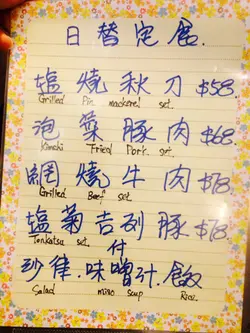 日替定食.
塩燒秋刀 $58.
Grilled Pie mackerel set.
泡菜豚肉 $68.
Kimchi Fried Pork set.
網燒牛肉 $78.
Grilled Beef set
塩菊吉列豚 $78.
Tonkatsu set.
付
沙律.味噌汁.飯
Salad miso soup Rice.